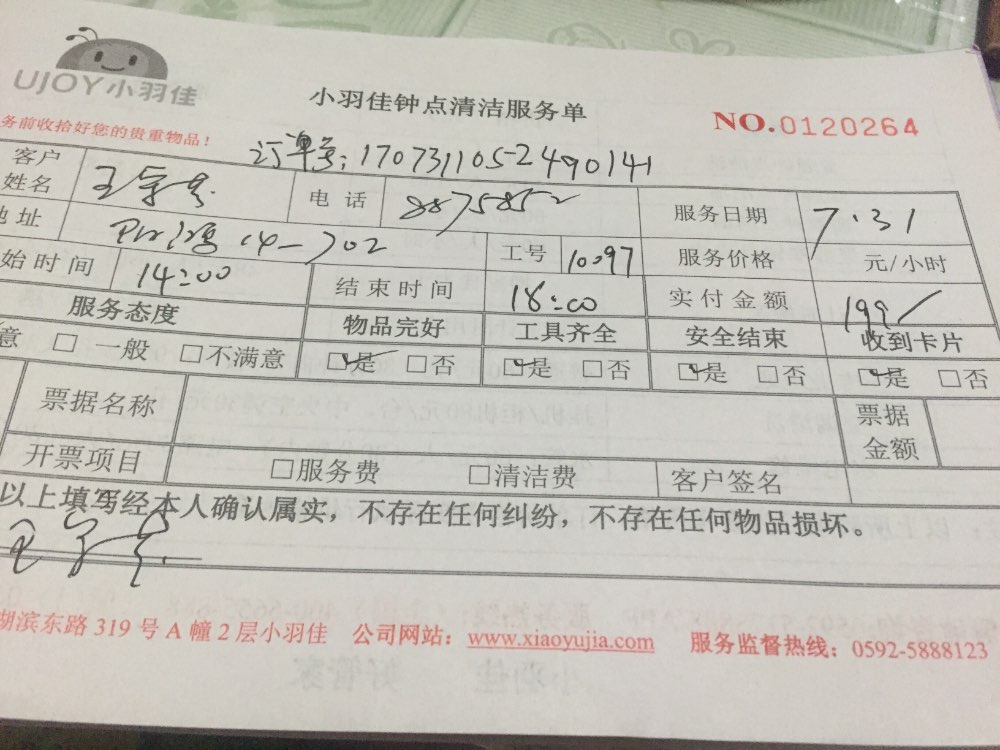 UJOY小羽佳
小羽佳钟点清洁服务单
NO.0120264
务前收拾好您的贵重物品！
订单号：17073110524490141
客户姓名 电话 8875852 服务日期 7.31
地址 14-702 工号 10097 服务价格 元/小时
始时间 14:00 结束时间 18:00 实付金额 199
服务态度 物品完好 工具齐全 安全结束 收到卡片
意 □ 一般 □不满意 ☑是 □否 ☑是 □否 ☑是 □否 ☑是 □否
票据名称 票据金额
开票项目 □服务费 □清洁费 客户签名
以上填写经本人确认属实，不存在任何纠纷，不存在任何物品损坏。
湖滨东路 319 号 A 幢 2 层小羽佳 公司网站：www.xiaoyujia.com 服务监督热线：0592-5888123